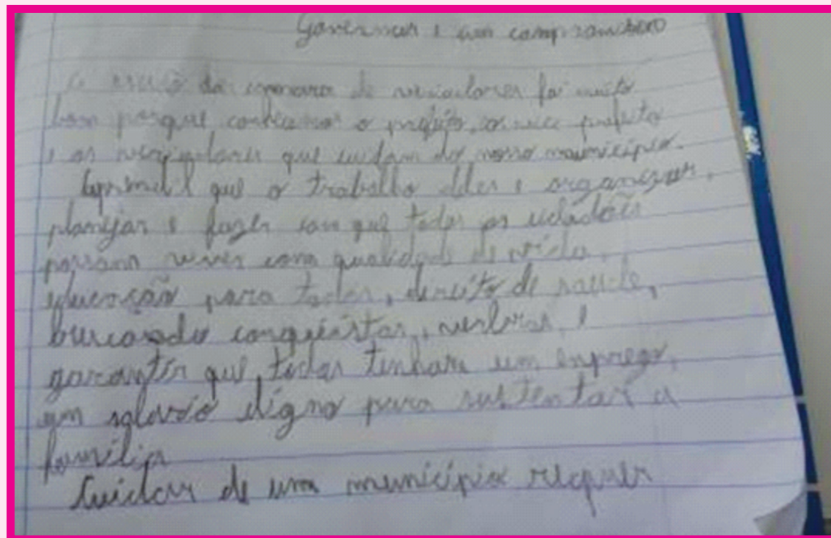 Governar é um compromisso
A da camara de vereadores foi muito
bom porque conhecemos o prefeito, o vice prefeito
e os vereadores que cuidam do nosso município.
Aprendi que o trabalho deles é organizar,
planejar e fazer com que todos os cidadões
possam viver com qualidade de vida,
educação para todos, direito de saude,
buscando conquistas, verbas, e
garantir que todos tenham um emprego,
um salario digno para sustentar a
família
Cuidar de um município requer